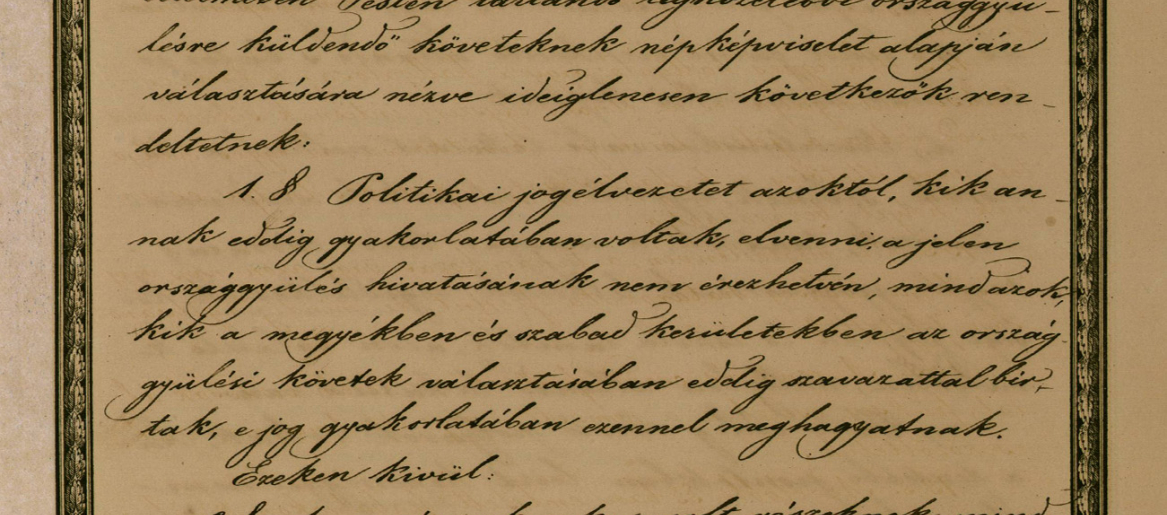 Pesten tartandó legközelebbi országgyü-
lésre küldendő követeknek népképviselet alapján
választására nézve ideiglenesen következők ren-
deltetnek:
1. § Politikai jogélvezetet azoktól, kik an-
nak eddig gyakorlatában voltak, elvenni a jelen
országgyülés hivatásának nem érezhetvén, mind azok,
kik a megyékben és szabad kerületekben az ország-
gyülési követek választásában eddig szavazattal bir-
tak, e jog gyakorlatában ezennel meghagyatnak.
Ezeken kivül: